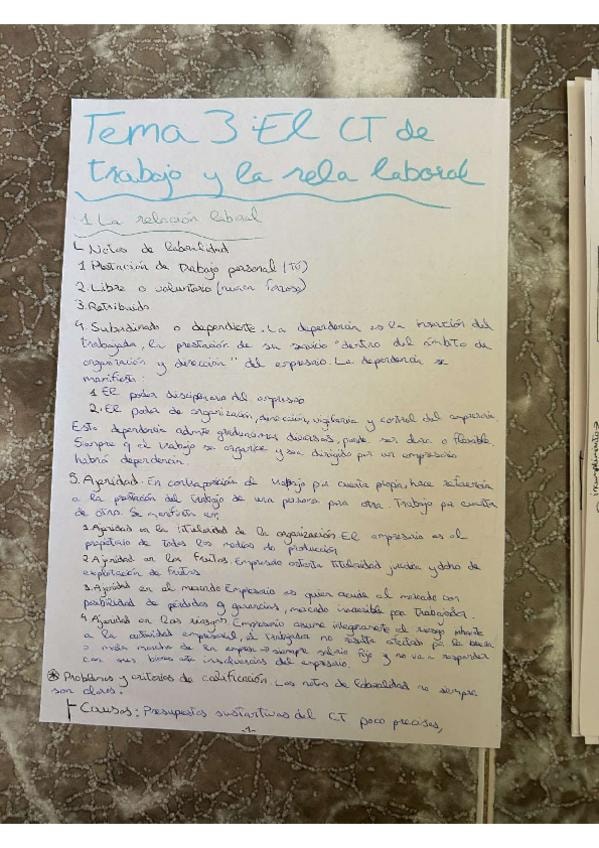 Tema 3: El CT de
trabajo y la rela laboral
1 La relación laboral
Notas de laboralidad
1 Prestación de trabajo personal (TÚ)
2. Libre o voluntario (nunca forzoso)
3. Retribuido
4. Subordinado o dependiente. La dependencia es la inserción del
trabajador, la prestación de su servicio "dentro del ámbito de
organización y dirección" del empresario. La dependencia se
manifiesta:
1 El poder disciplinario del empresario
2. El poder de organización, dirección, vigilancia y control del empresario.
Esta dependencia admite graduaciones diversas, puede ser dura o flexible.
Siempre q el trabajo se organice y sea dirigido por un empresario
habrá dependencia.
5. Ajenidad. En contraposición de trabajo por cuenta propia, hace referencia
a la prestación del trabajo de una persona para otra. Trabajo por cuenta
de otro. Se manifiesta en:
1. Ajenidad en la titularidad de la organización El empresario es el
propietario de todos los medios de producción
2. Ajenidad en los frutos. Empresario ostenta titularidad jurídica y dcho de
explotación de frutos
3. Ajenidad en el mercado Empresario es quien acude al mercado con
posibilidad de pérdidas y ganancias, mercado inaccesible para trabajador.
4. Ajenidad en los riesgos Empresario asume integramente el riesgo inherente
a la actividad empresarial, el trabajador no resulta afectado por la buena
o mala marcha de la empresa → siempre salario fijo y no va a responder
con sus bienes ante insolvencias del empresario.
Problemas y criterios de calificación. Las notas de laboralidad no siempre
son claras.
Causas: Presupuestos sustantivos del CT poco precisos,
-1-
incumplimientos